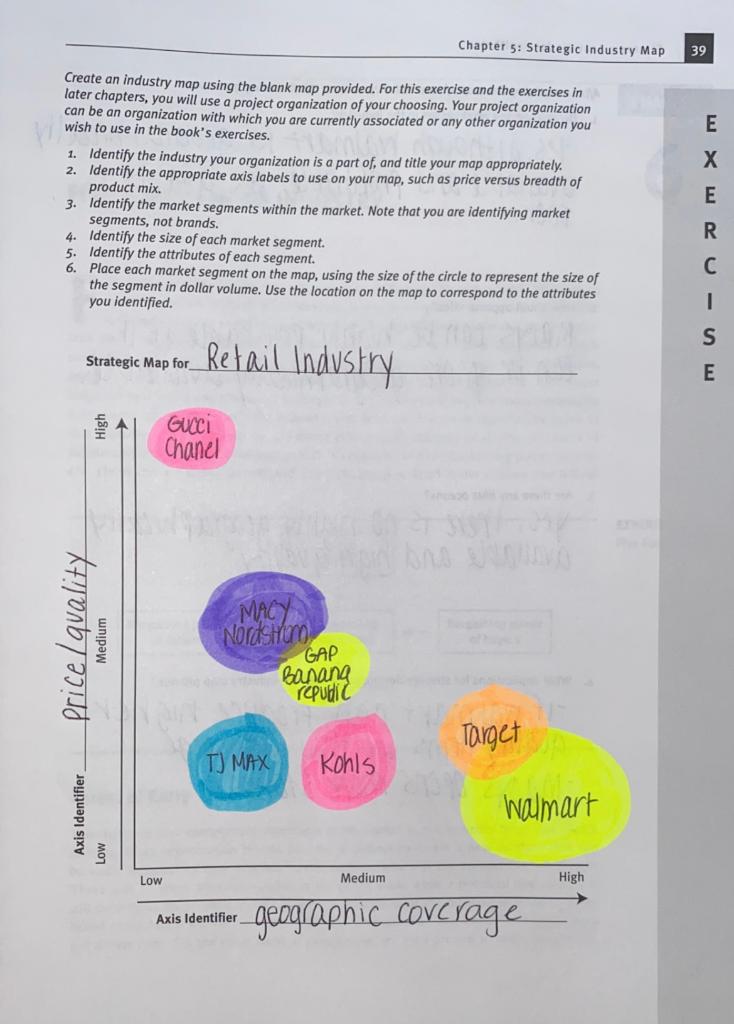 Chapter 5: Strategic Industry Map 39
Create an industry map using the blank map provided. For this exercise and the exercises in
later chapters, you will use a project organization of your choosing. Your project organization
can be an organization with which you are currently associated or any other organization you
wish to use in the book's exercises.
1. Identify the industry your organization is a part of, and title your map appropriately.
2. Identify the appropriate axis labels to use on your map, such as price versus breadth of
product mix.
3. Identify the market segments within the market. Note that you are identifying market
segments, not brands.
4. Identify the size of each market segment.
5. Identify the attributes of each segment.
6. Place each market segment on the map, using the size of the circle to represent the size of
the segment in dollar volume. Use the location on the map to correspond to the attributes
you identified.
EXERCISE
Strategic Map for Retail Industry
High
Gucci
Chanel
Axis Identifier price/quality
Medium
MACY
Nordstrum
GAP
Banana
republic
Target
TJ MAX
Kohls
Walmart
Low
Low Medium High
Axis Identifier geographic coverage